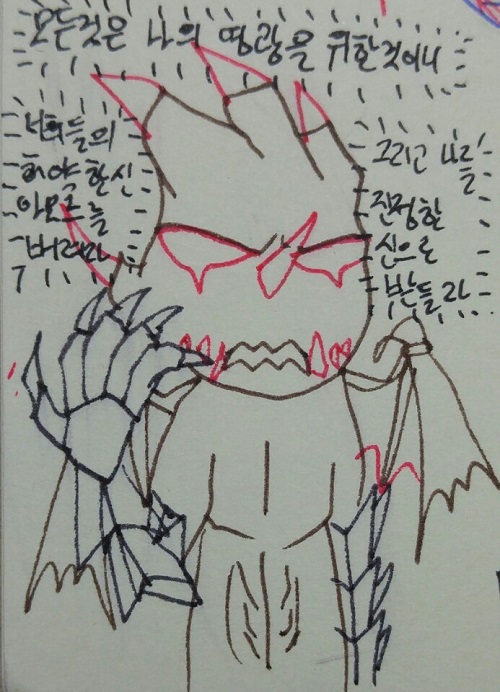 모든것은 나의 영광을 위한것이니
너희들의
허약한신
아모르를
버려라
그리고 나를
진정한
신으로
받들라